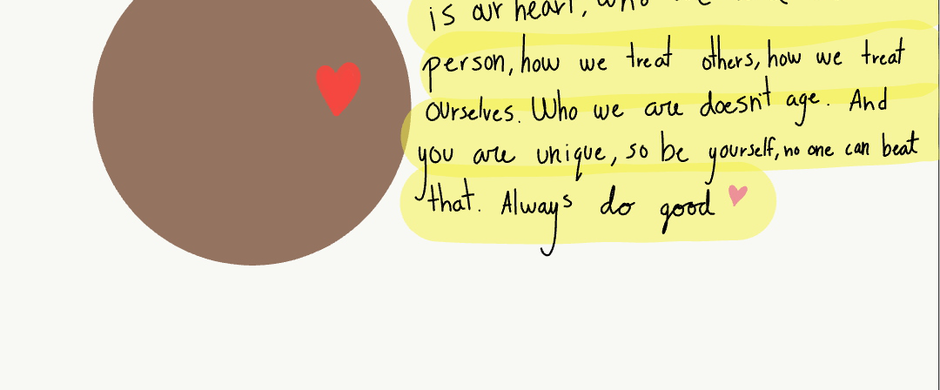 is our heart, who
person, how we treat others, how we treat
ourselves. Who we are doesn't age. And
you are unique, so be yourself, no one can beat
that. Always do good